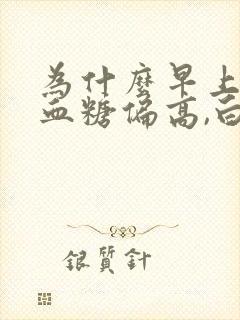 為什麼早上
血糖偏高,白
銀質針